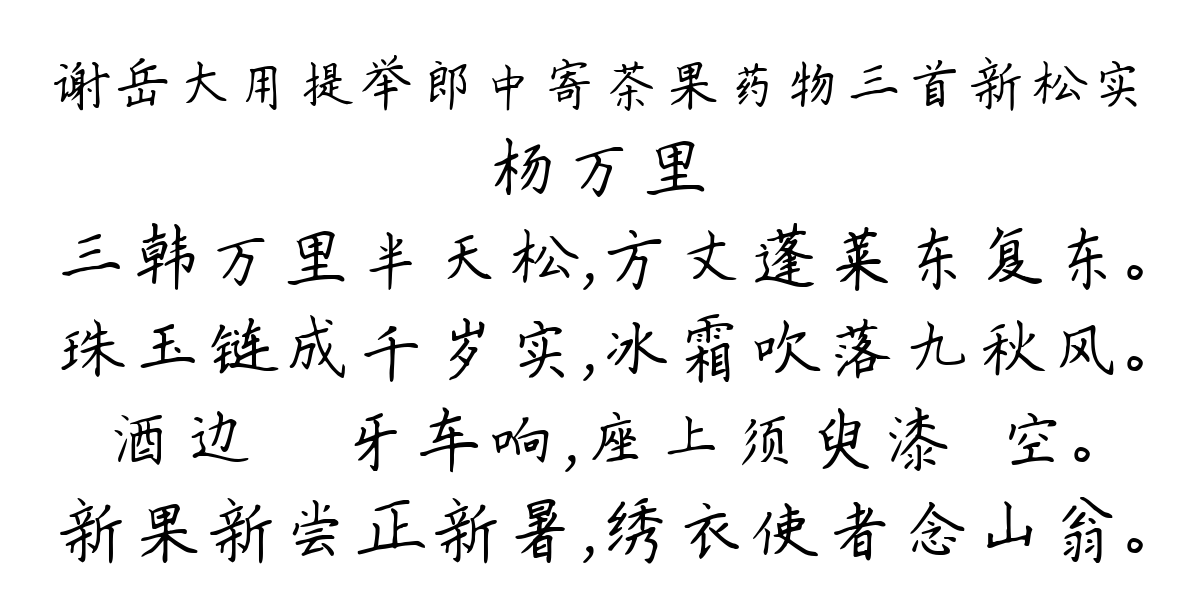 谢岳大用提举郎中寄茶果药物三首新松实
杨万里
三韩万里半天松,方丈蓬莱东复东。
珠玉链成千岁实,冰霜吹落九秋风。
酒边 牙车响,座上须臾漆 空。
新果新尝正新暑,绣衣使者念山翁。